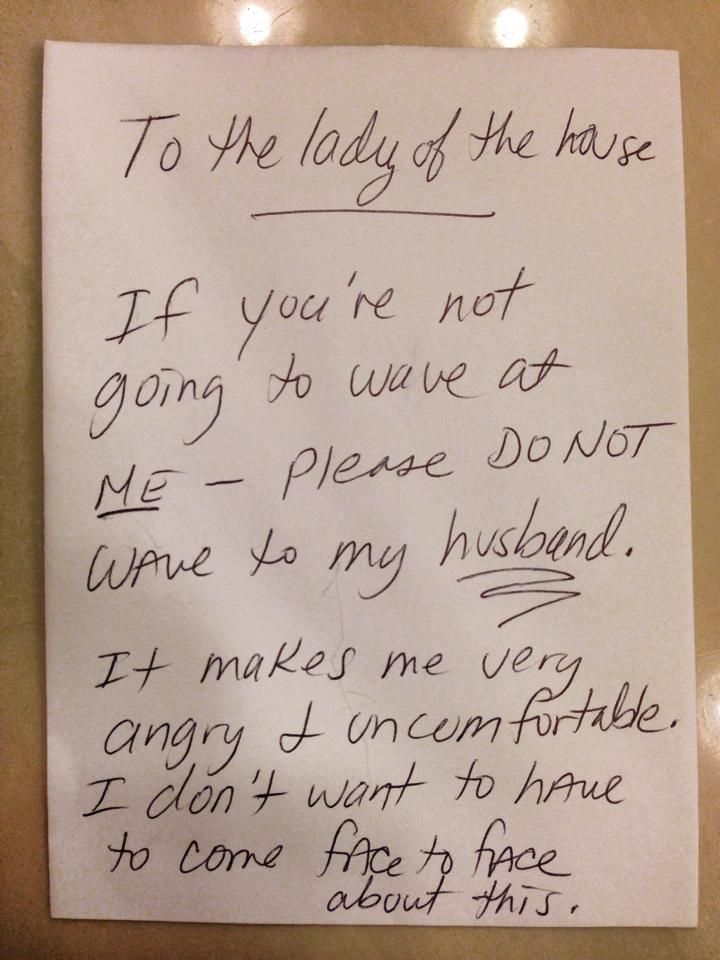 To the lady of the house
If you're not
going to wave at
ME - Please DO NOT
WAve to my husband.
It makes me very
angry & uncomfortable.
I don't want to hAve
to come fAce to fAce
about this.